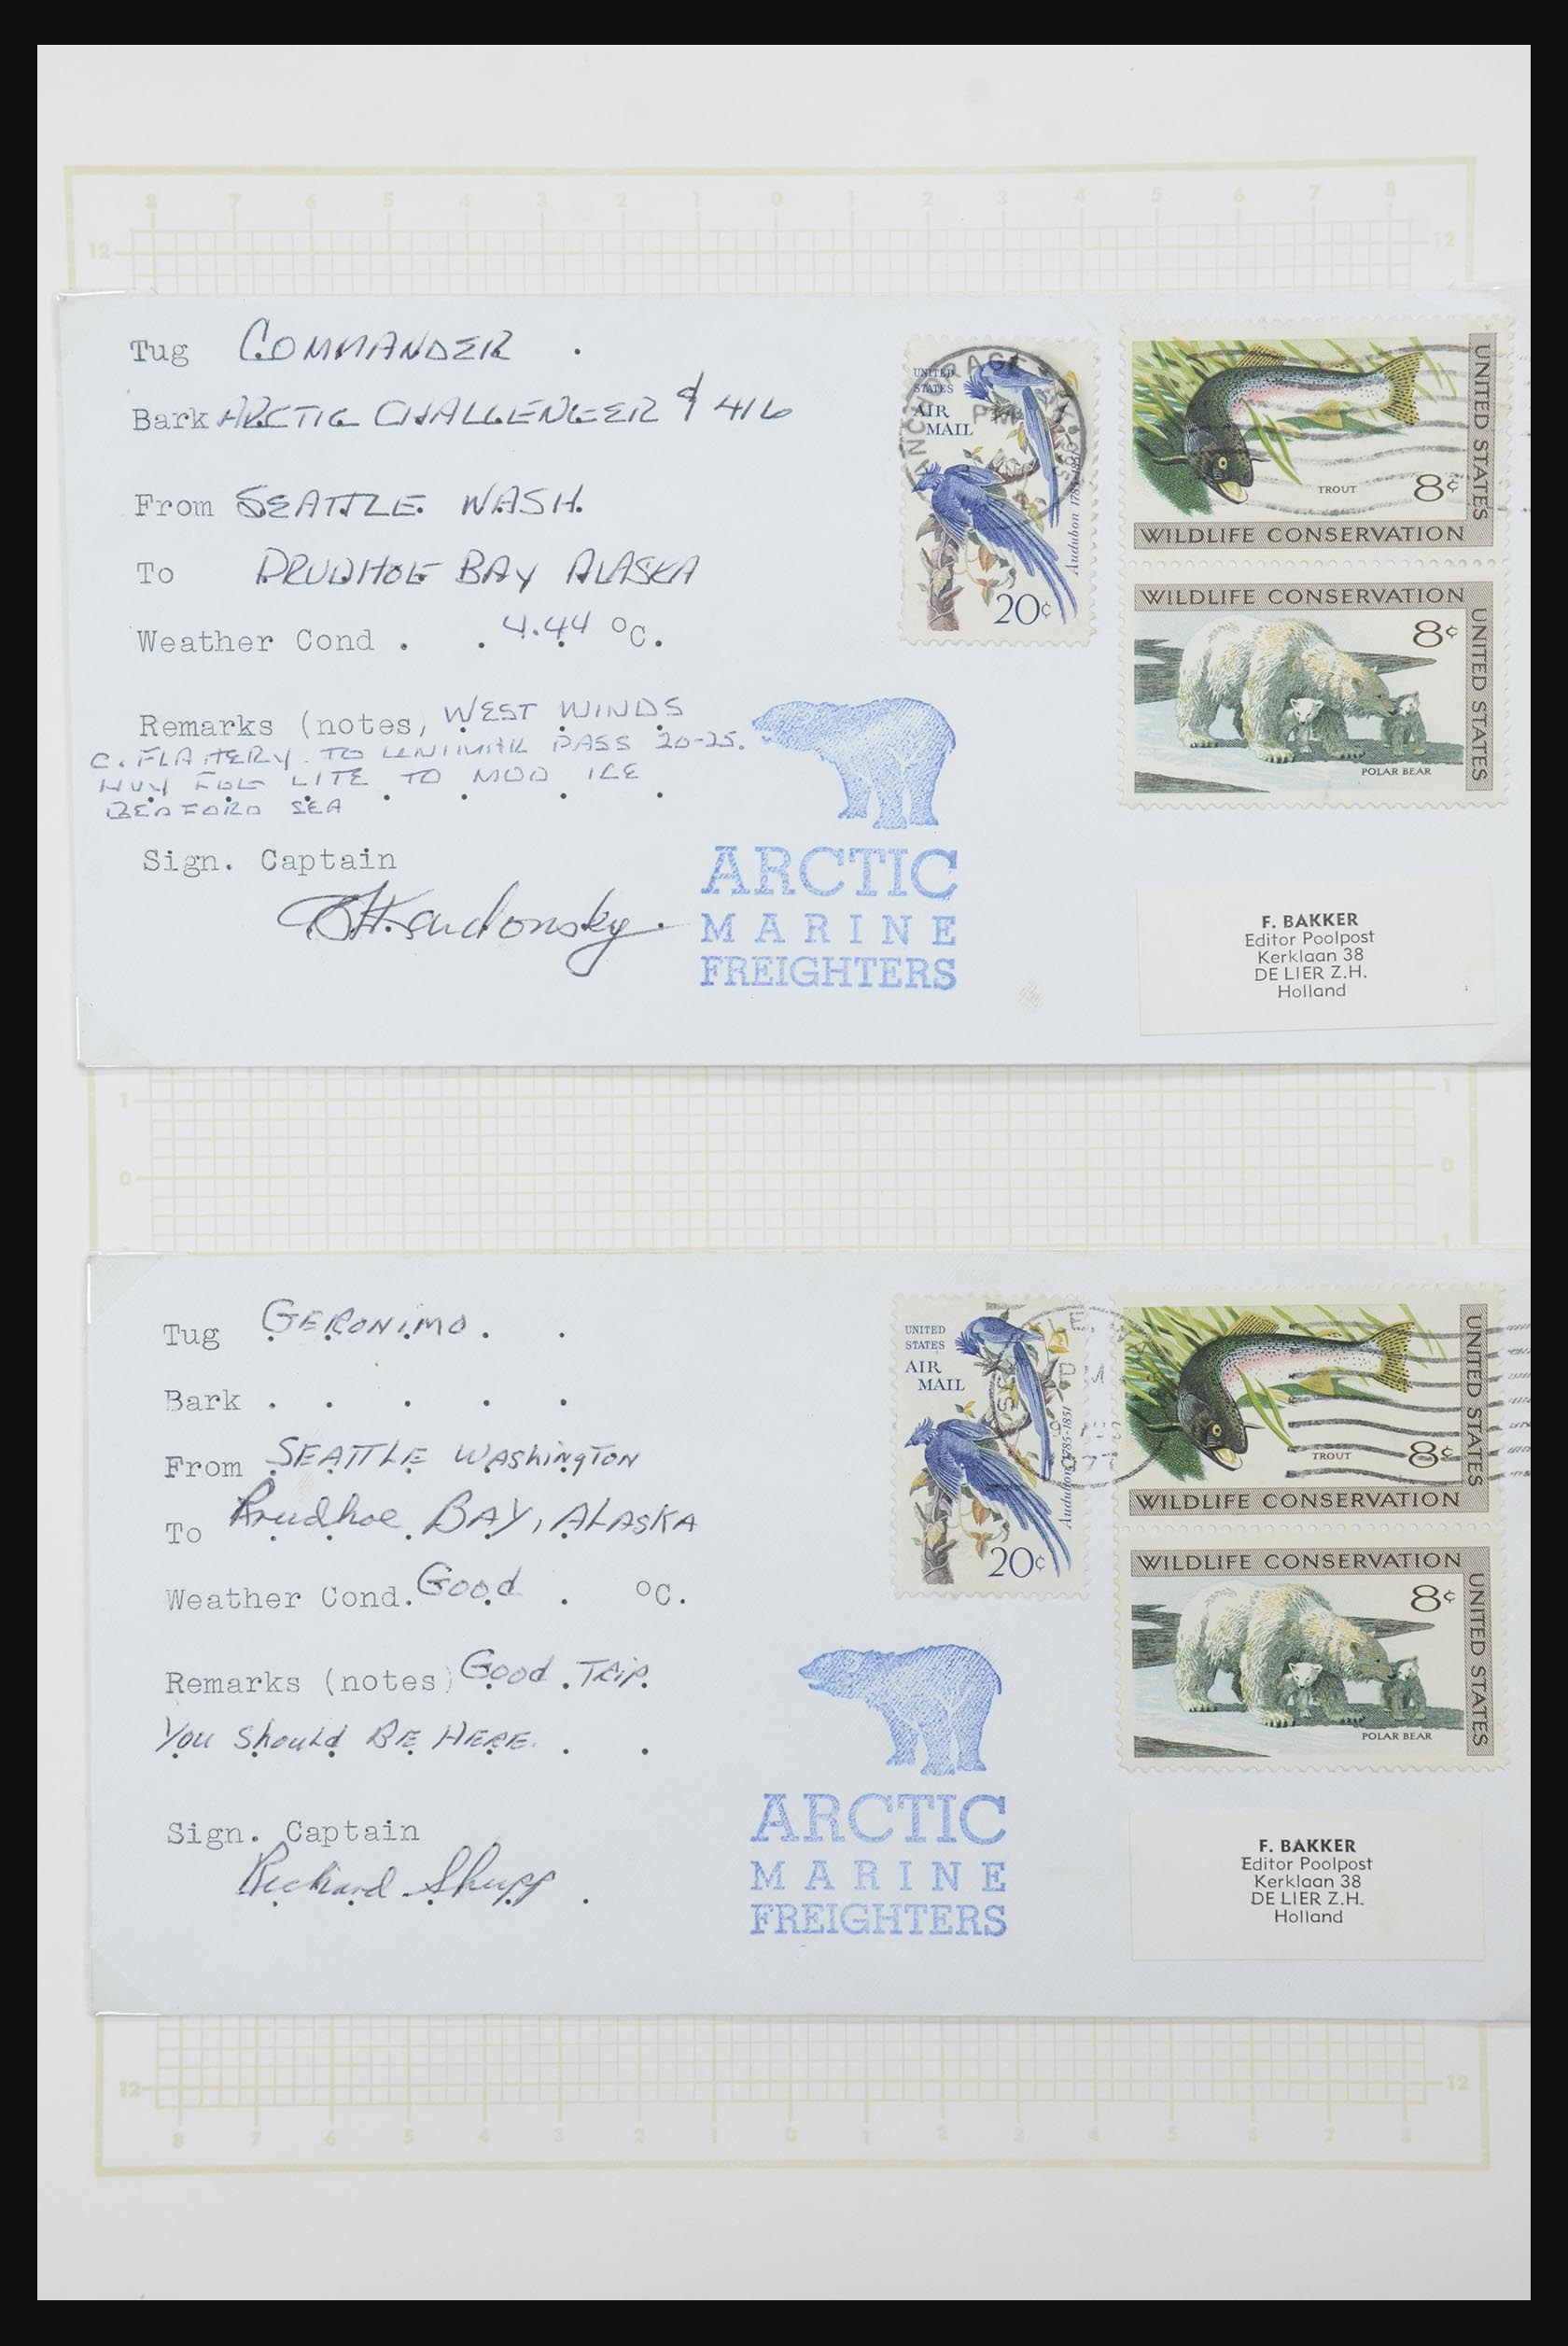 8 7 6 5 4 3 2 1 0 1 2 3 4 5 6 7 8
12 12
Tug COMMANDER .
Bark ARCTIC CHALLENGER & 416
From SEATTLE WASH.
To PRUDHOE BAY ALASKA
Weather Cond . . 4.44 °C.
Remarks (notes, WEST WINDS
C. FLATTERY TO UNIMAK PASS 20-25.
HVY FOG LITE TO MOD ICE
SEA
Sign. Captain
ANCHORAGE
PM
UNITED
STATES
AIR
MAIL
Audubon 1785-1851
20¢
TROUT 8¢
UNITED STATES
WILDLIFE CONSERVATION
WILDLIFE CONSERVATION
8¢
UNITED STATES
POLAR BEAR
ARCTIC
MARINE
FREIGHTERS
F. BAKKER
Editor Poolpost
Kerklaan 38
DE LIER Z.H.
Holland
1 1
0 0
Tug GERONIMO . .
Bark . . . . .
From SEATTLE WAShiNgTON
To Prudhoe BAY, ALASKA
Weather Cond. Good . °C.
Remarks (notes) Good . TRip.
You Should BE HERE. . .
Sign. Captain
Richard Shupp .
UNITED
STATES
AIR
MAIL
Audubon 1785-1851
20¢
PM
TROUT 8¢
UNITED STATES
WILDLIFE CONSERVATION
WILDLIFE CONSERVATION
8¢
UNITED STATES
POLAR BEAR
ARCTIC
MARINE
FREIGHTERS
F. BAKKER
Editor Poolpost
Kerklaan 38
DE LIER Z.H.
Holland
12 12
8 7 6 5 4 3 2 1 0 1 2 3 4 5 6 7 8